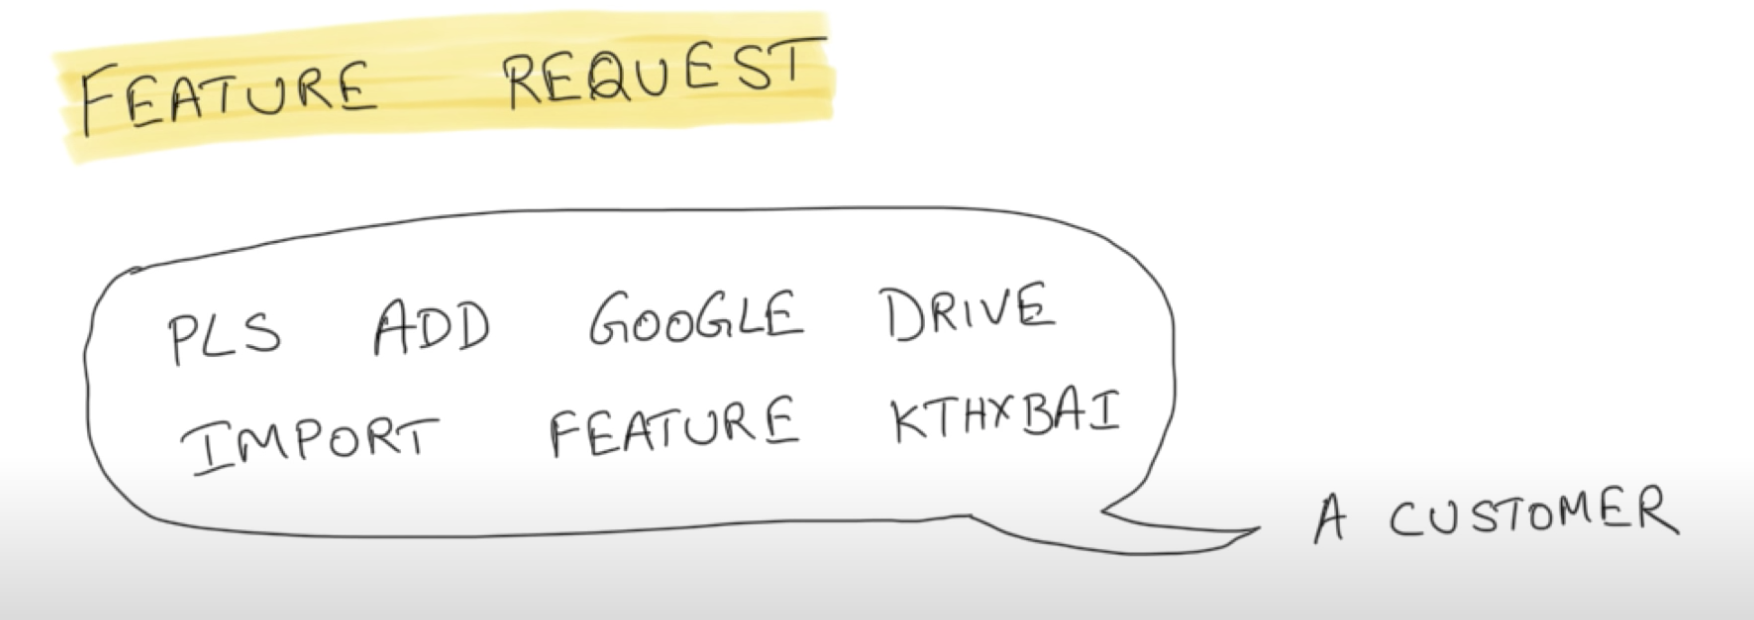 FEATURE REQUEST
PLS ADD GOOGLE DRIVE
IMPORT FEATURE KTHXBAI
A CUSTOMER